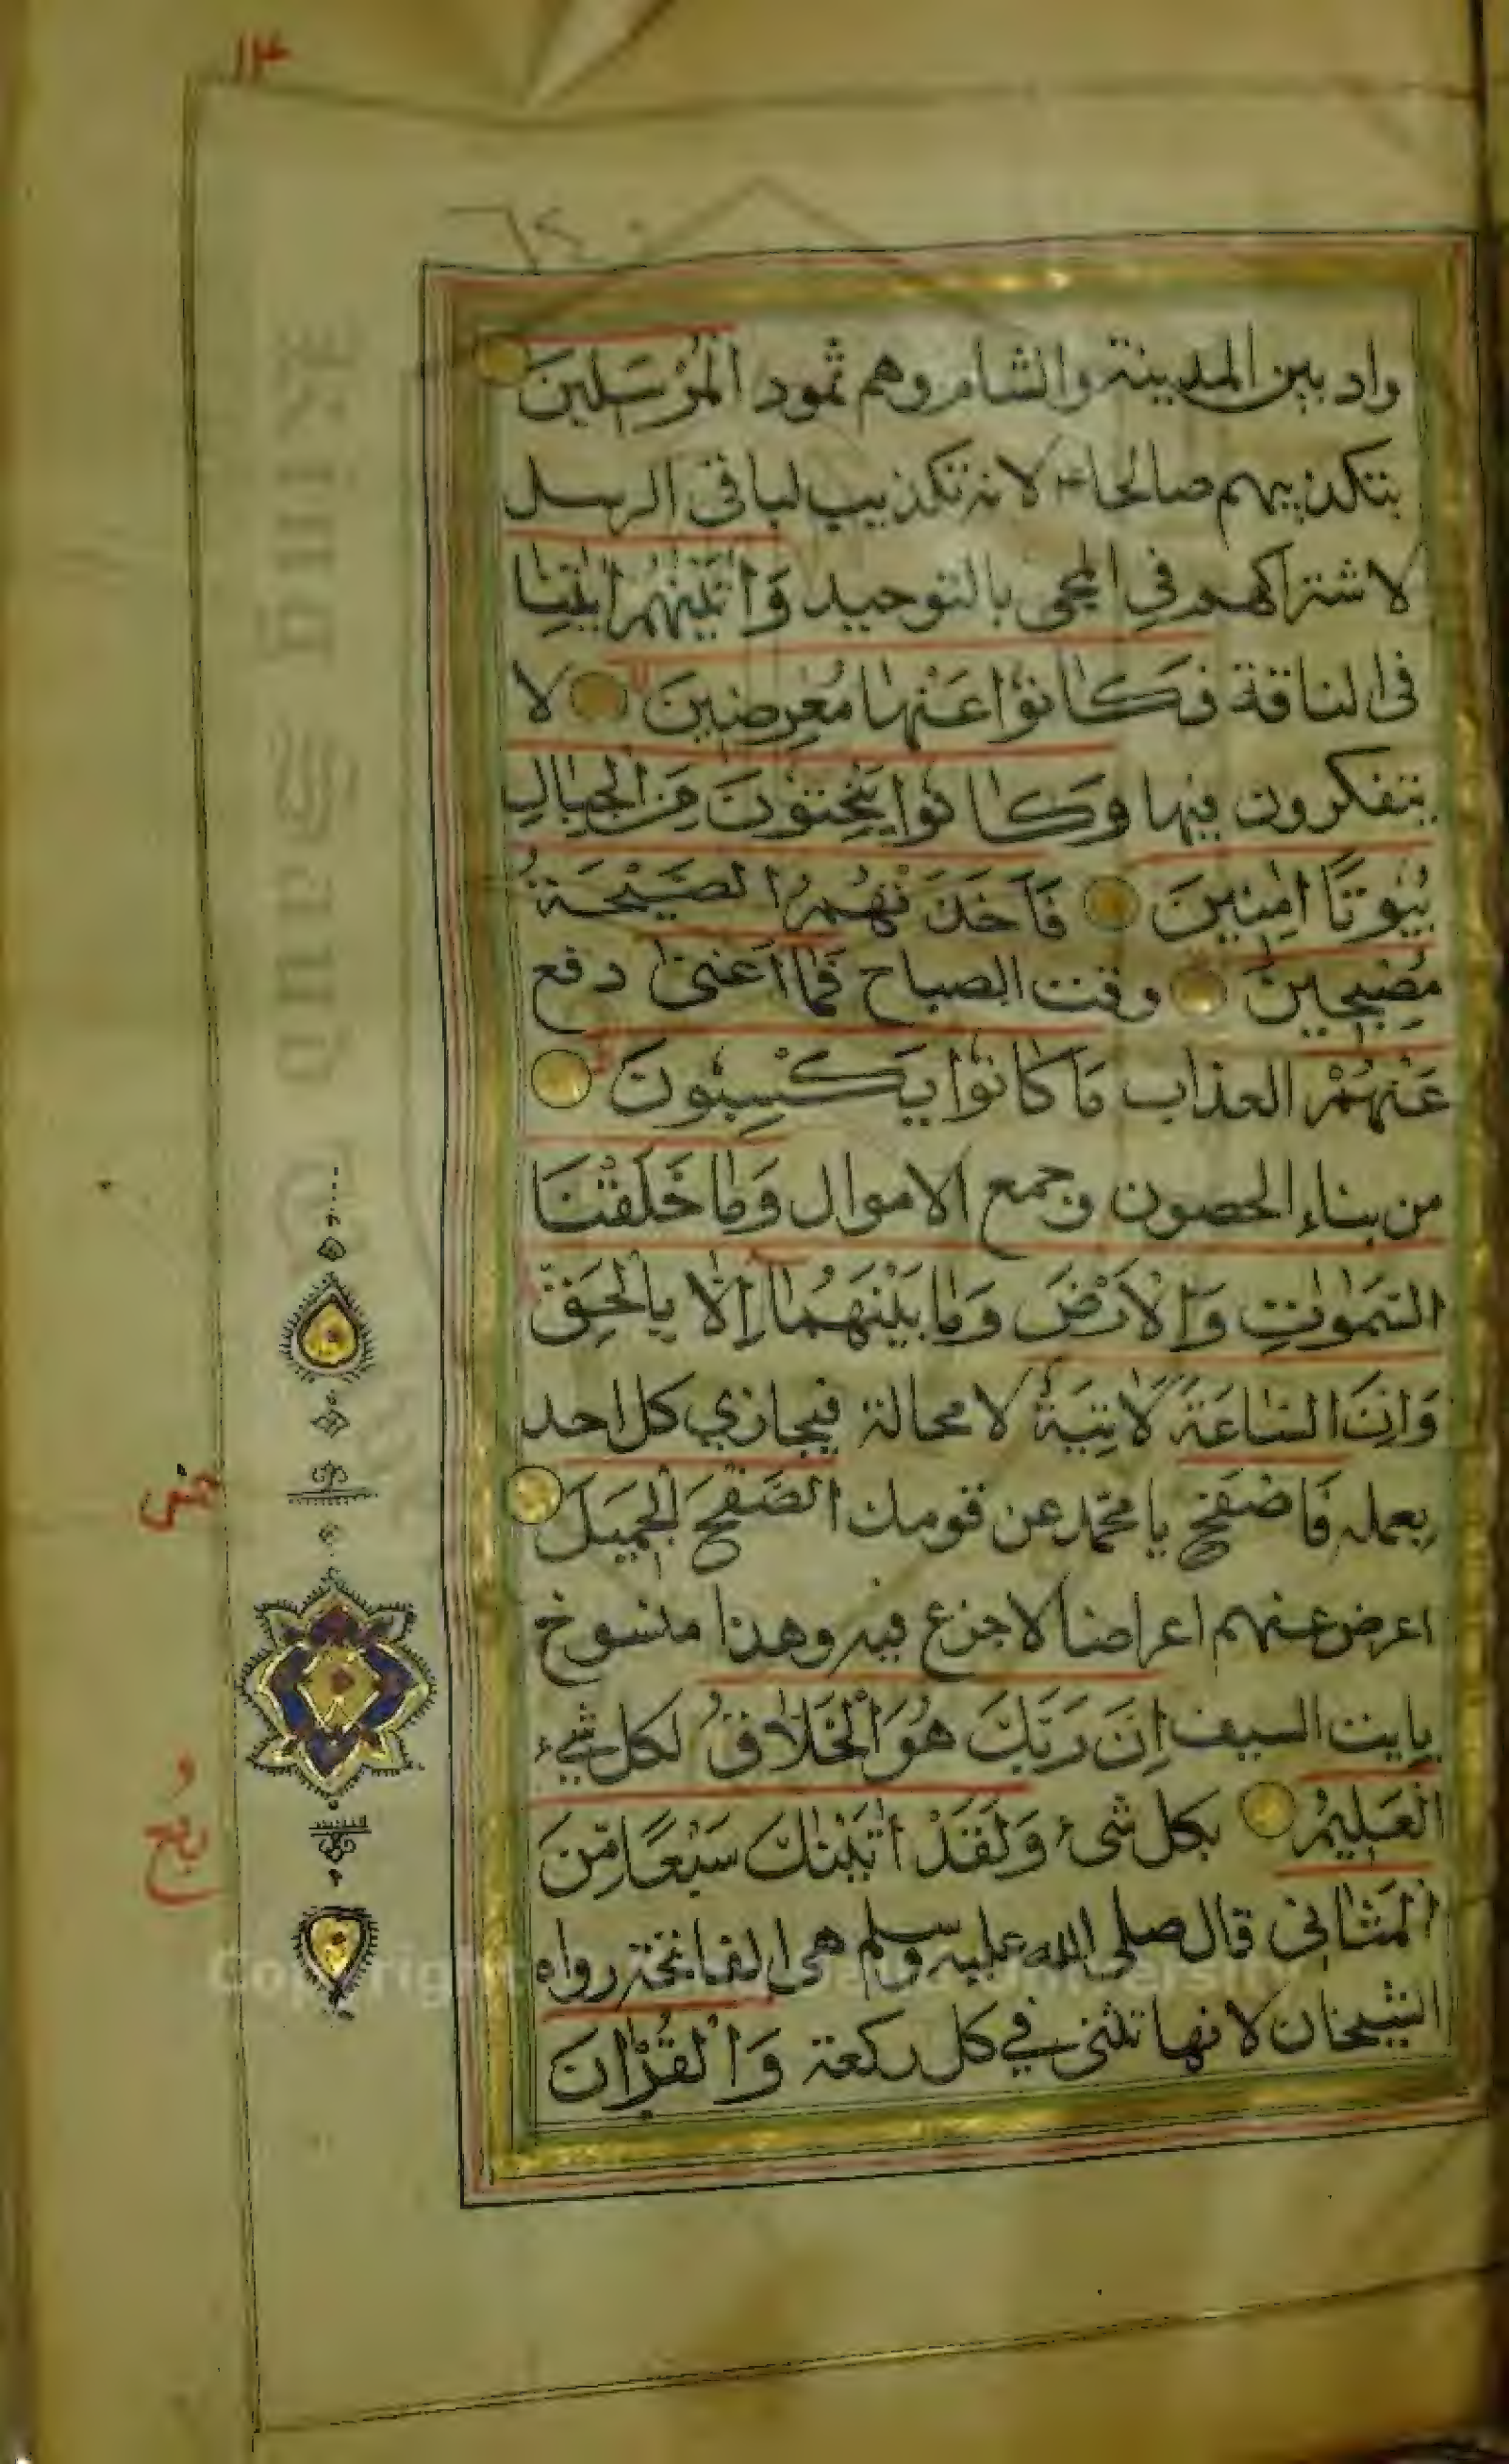 ١٣
واد بين المدينة والشام وهم ثمود الْمُرْسَلِينَ
بتكذيبهم صالحا لانه تكذيب لباقى الرسل
لاشتراكهم في المجى بالتوحيد وَاٰتَيْنٰهُمْ اٰيٰتِنَا
فى الناقة فَكَانُوْا عَنْهَا مُعْرِضِينَ لا
يتفكرون فيها وَكَانُوا يَنْحِتُوْنَ مِنَ الْجِبَالِ
بُيُوتًا اٰمِنِينَ فَاَخَذَتْهُمُ الصَّيْحَةُ
مُصْبِحِينَ وقت الصباح فَمَا اَغْنٰى دفع
عَنْهُمْ العذاب مَا كَانُوْا يَكْسِبُونَ
من بناء الحصون وجمع الاموال وَمَا خَلَقْنَا
السَّمٰوٰتِ وَالْاَرْضَ وَمَا بَيْنَهُمَآ اِلَّا بِالْحَقِّ
وَاِنَّ السَّاعَةَ لَاٰتِيَةٌ لا محالة فيجازي كل احد
بعمله فَاصْفَحِ يا محمد عن قومك الصَّفْحَ الْجَمِيلَ
اعرض عنهم اعراضا لا جزع فيه وهذا منسوخ
بايت السيف اِنَّ رَبَّكَ هُوَ الْخَلَّاقُ لكل شيء
الْعَلِيْمُ بكل شىء وَلَقَدْ اٰتَيْنٰكَ سَبْعًا مِّنَ
الْمَثَانِى قال صلى الله عليه وسلم هى الفاتحة رواه
الشيخان لانها تثنى في كل ركعة وَالْقُرْاٰنَ
ربع
King Saud